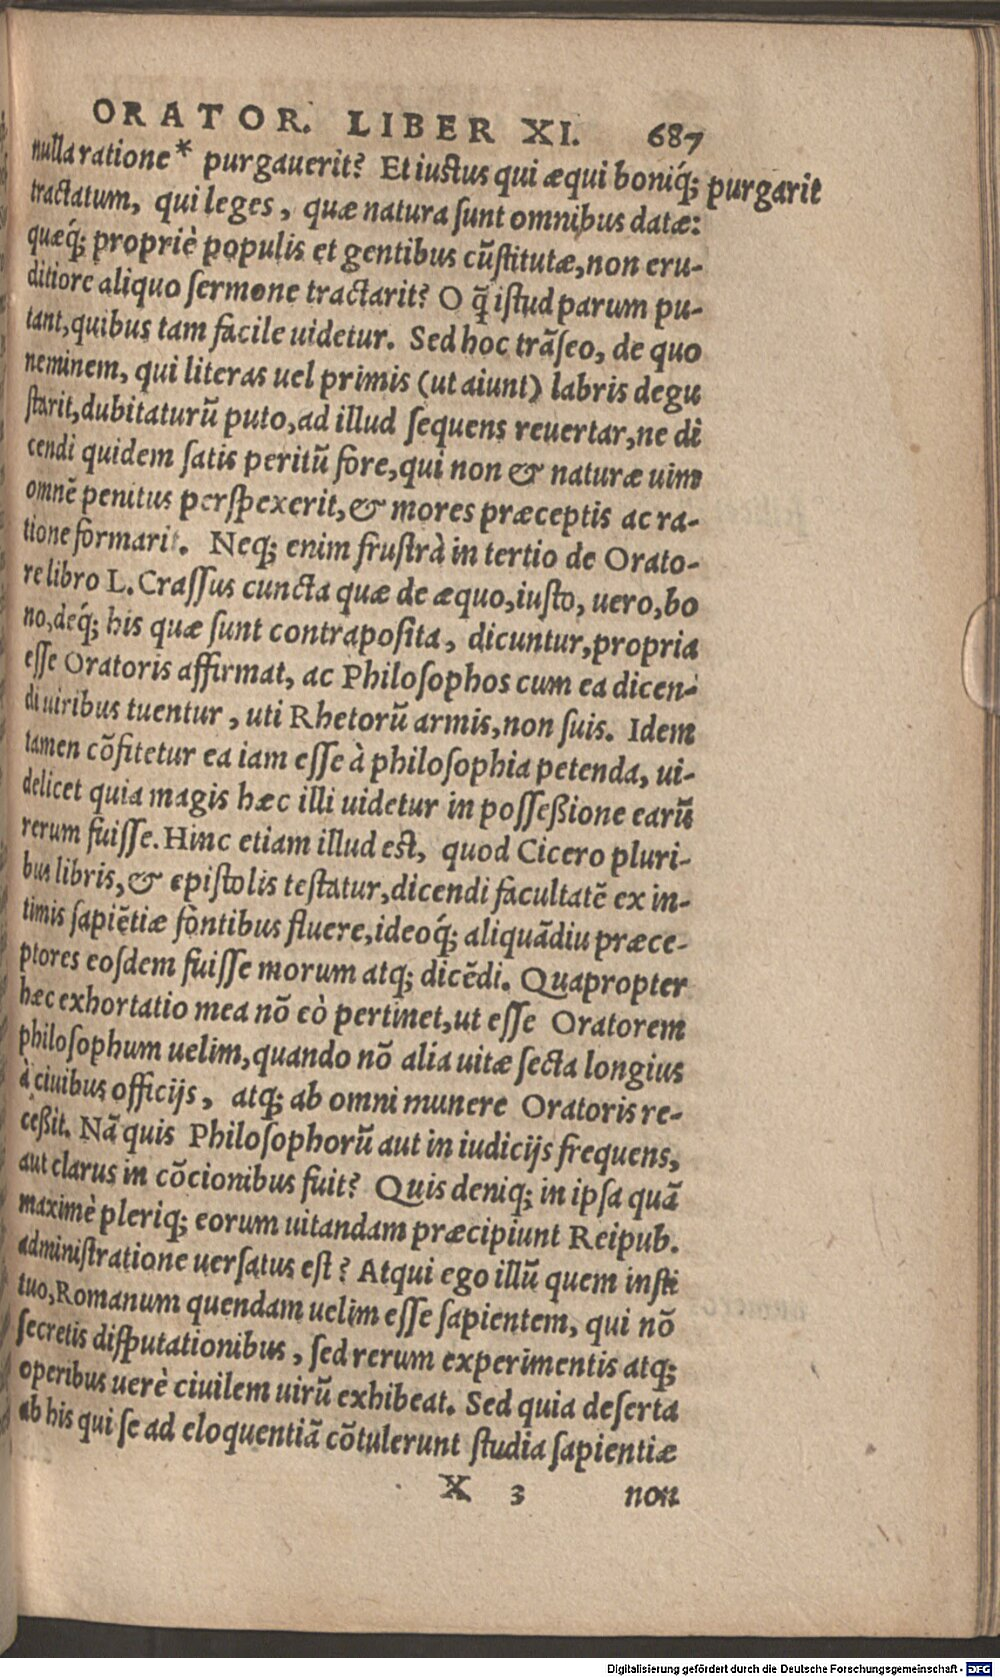 ORATOR. LIBER XI. 687
nulla ratione* purgauerit? Et iustus qui æqui boniq́; purgarit
tractatum, qui leges, quæ natura sunt omnibus datæ:
quæq́; propriè populis et gentibus cũstitutæ, non eru-
ditiore aliquo sermone tractarit? O q̃ istud parum pu-
tant, quibus tam facile uidetur. Sed hoc trãseo, de quo
neminem, qui literas uel primis (ut aiunt) labris degu
starit, dubitaturũ puto, ad illud sequens reuertar, ne di
cendi quidem satis peritũ fore, qui non & naturæ uim
omnẽ penitus perspexerit, & mores præceptis ac ra-
tione formarit. Neq; enim frustrà in tertio de Orato-
re libro L. Crassus cuncta quæ de æquo, iusto, uero, bo
no, deq́; his quæ sunt contraposita, dicuntur, propria
esse Oratoris affirmat, ac Philosophos cum ea dicen-
di uiribus tuentur, uti Rhetorũ armis, non suis. Idem
tamen cõfitetur ea iam esse à philosophia petenda, ui-
delicet quia magis hæc illi uidetur in possessione earũ
rerum fuisse. Hinc etiam illud est, quod Cicero pluri-
bus libris, & epistolis testatur, dicendi facultatẽ ex in-
timis sapiẽtiæ fontibus fluere, ideoq́; aliquãdiu præce-
ptores eosdem fuisse morum atq; dicẽdi. Quapropter
hæc exhortatio mea nõ eò pertinet, ut esse Oratorem
philosophum uelim, quando nõ alia uitæ secta longius
à ciuibus officijs, atq; ab omni munere Oratoris re-
cessit. Nã quis Philosophorũ aut in iudicijs frequens,
aut clarus in cõcionibus fuit? Quis deniq; in ipsa quã
maximè pleriq; eorum uitandam præcipiunt Reipub.
administratione uersatus est? Atqui ego illũ quem insti
tuo, Romanum quendam uelim esse sapientem, qui nõ
secretis disputationibus, sed rerum experimentis atq;
operibus uerè ciuilem uirũ exhibeat. Sed quia deserta
ab his qui se ad eloquentiã cõtulerunt studia sapientiæ
X 3 non
Digitalisierung gefördert durch die Deutsche Forschungsgemeinschaft - DFG